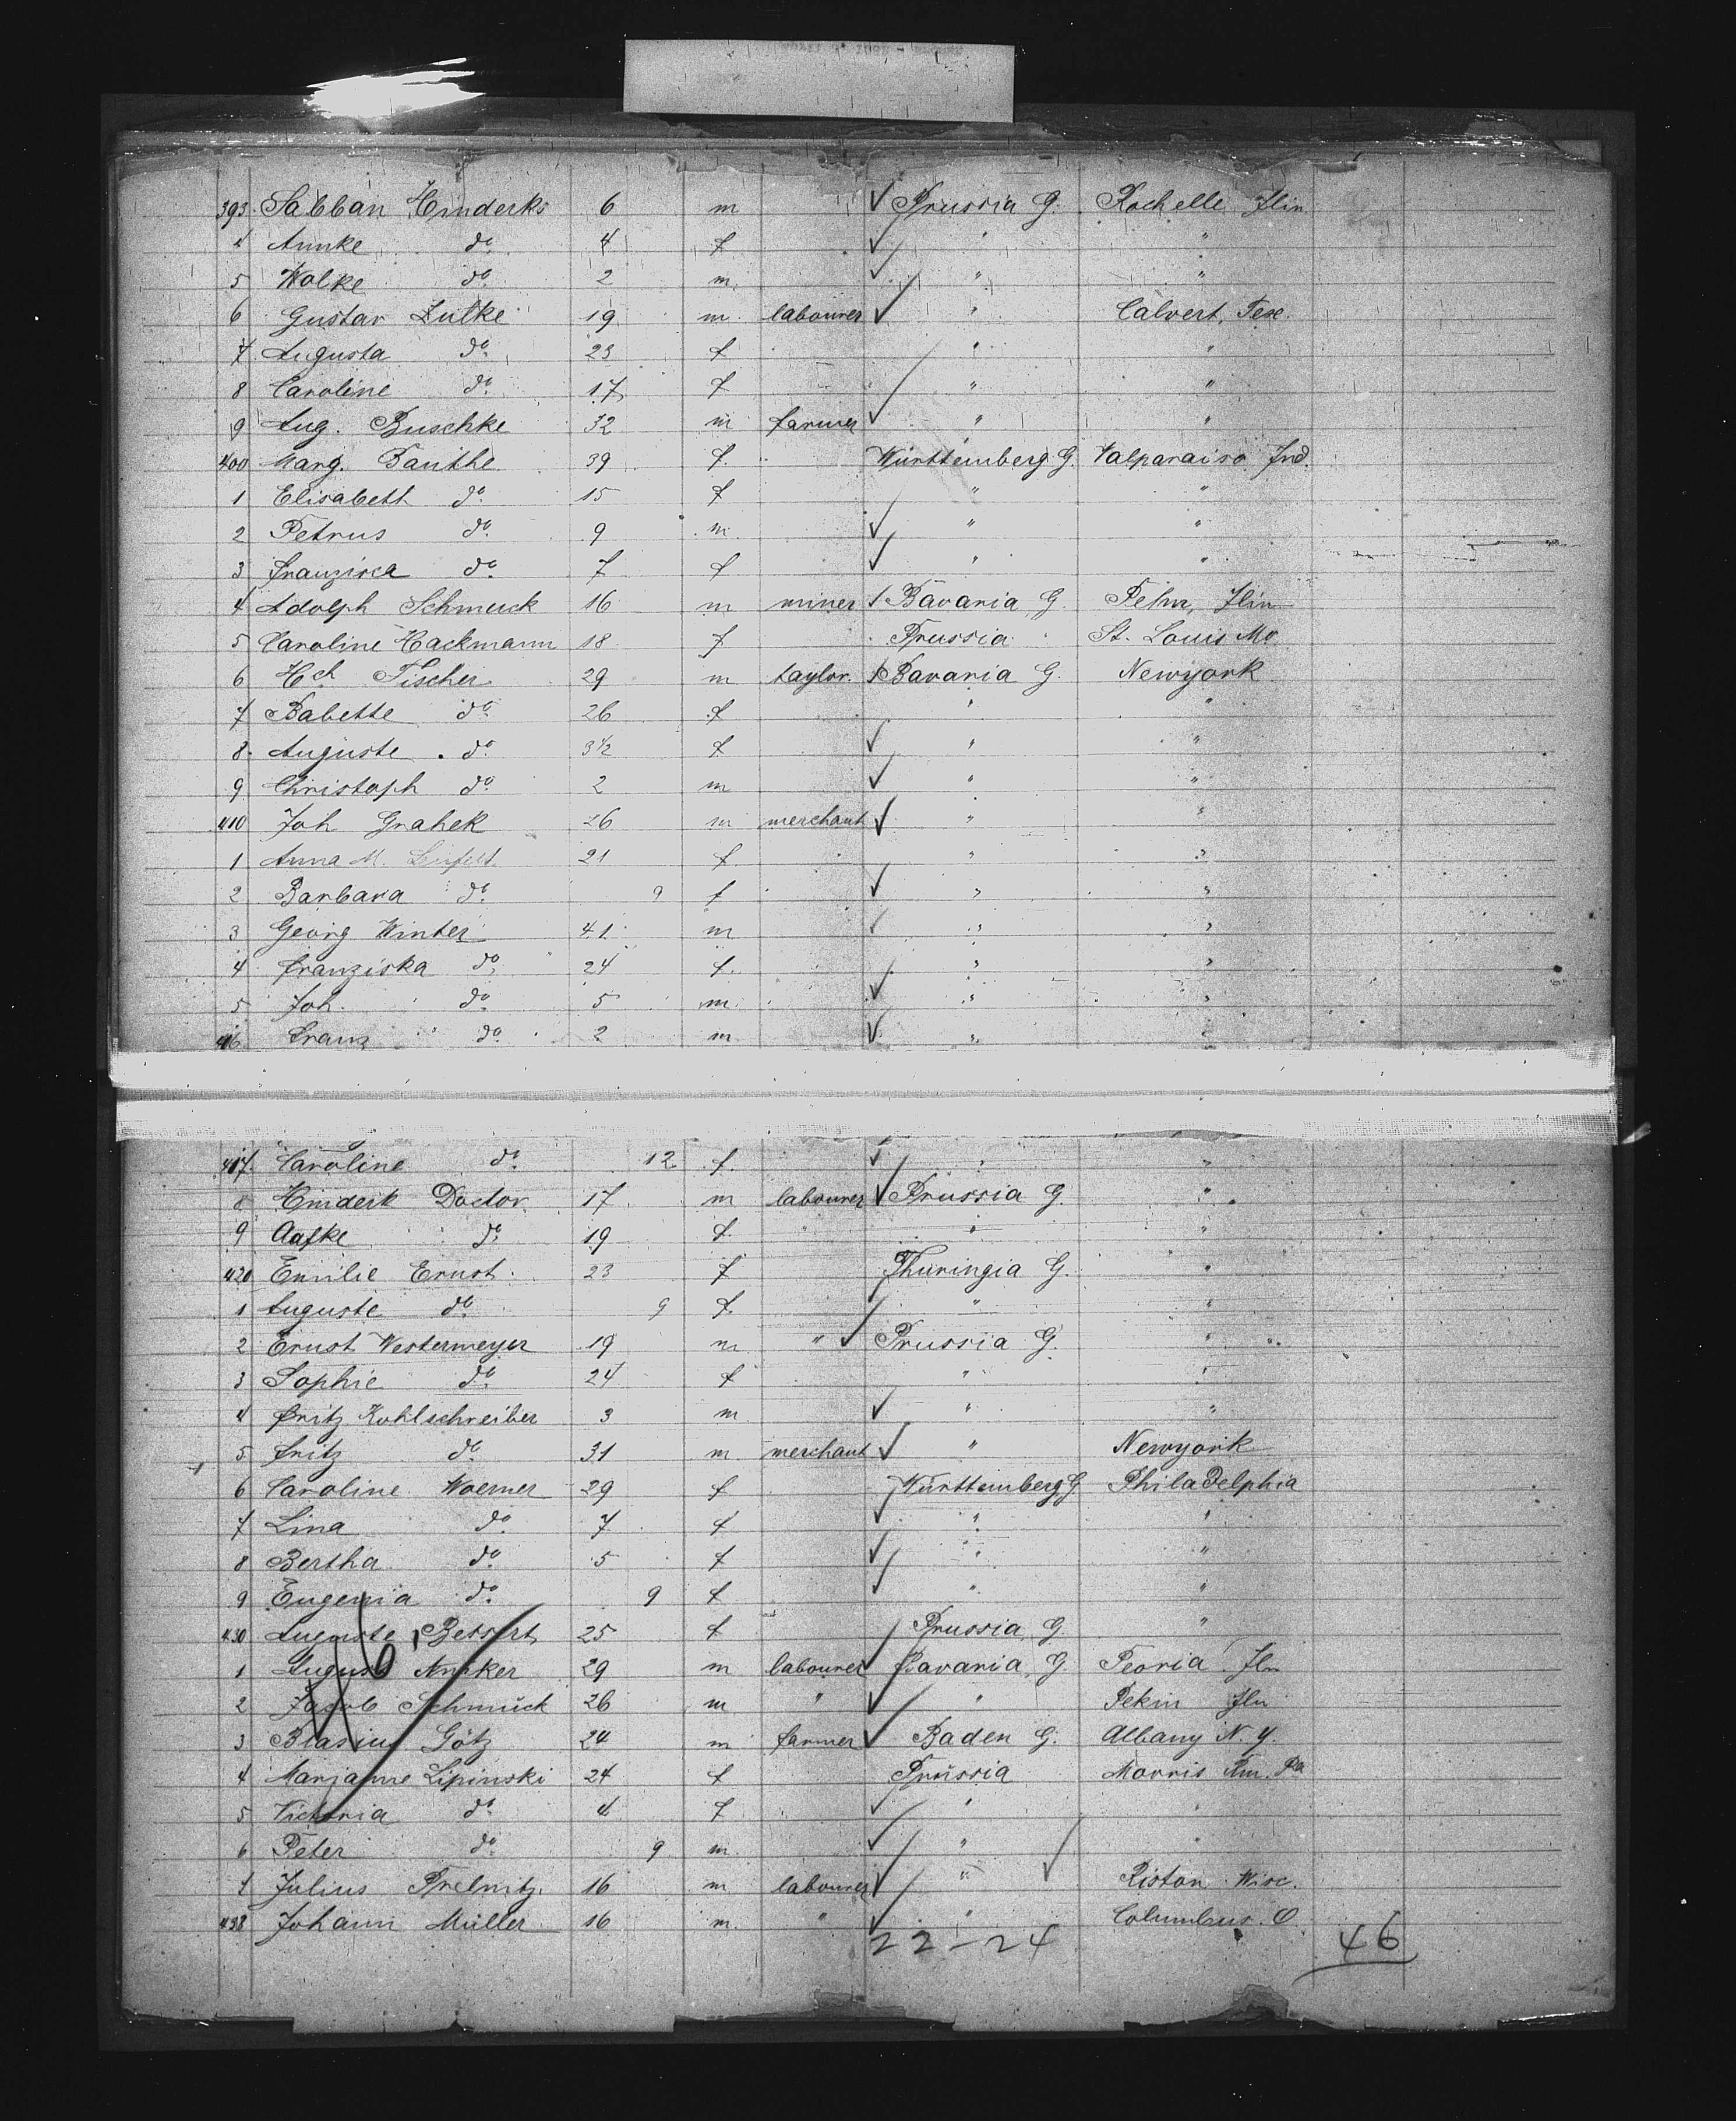 393. Sabban Hinderks 6 m Prussia G. Rochelle Ilin
4 Annke do. 4 f " "
5 Wolke do. 2 m. " "
6 Gustav Lutke 19 m. labourer " Calvert, Tex.
7 Augusta do. 23 f " "
8 Caroline do. 17 f " "
9 Aug. Buschke 32 m farmer " "
400 Marg. Bauthe 39 f. Württemberg G. Valparaiso Ind.
1 Elisabeth do. 15 f " "
2 Petrus do. 9 m. " "
3 Franzisca do. 7 f " "
4 Adolph Schmuck 16 m miner Bavaria G. Ilin
5 Caroline Hackmann 18 f Prussia " St. Louis Mo
6 Hch Fischer 29 m taylor. Bavaria G. Newyork
7 Babette do. 26 f " "
8. Auguste do. 3 1/2 f " "
9 Christoph do. 2 m " "
410 Joh Grahek 26 m merchant " "
1 Anna M. 21 f " "
2 Barbara do. 9 f " "
3 Georg Winter 41 m " "
4 Franziska do. 24 f. " "
5 Joh. do. 5 m. " "
416 Franz do. 2 m " "
417. Caroline do. 12 f. " "
8 Hinderk Doctor 17 m labourer Prussia G. "
9 Aafke do. 19 f. " "
420 Emilie Ernst 23 f Thuringia G. "
1 Auguste do. 9 f. " "
2 Ernst Westermeyer 19 m " Prussia G. "
3 Sophie do. 24 f " "
4 Fritz Kohlschreiber 3 m " "
5 Fritz do. 31 m merchant " Newyork
6 Caroline Woerner 29 f Württemberg G Philadelphia
7 Lina do. 7 f " "
8 Bertha do. 5 f " "
9 Eugenia do. 9 f " "
430 Auguste Bessert 25 f Prussia G. "
1 August 29 m labourer Bavaria G. Peoria Iln
2 Jacob Schmück 26 m " " Pekin Iln
3 Blasius Götz 24 m farmer Baden G. Albany N. Y.
4 Marianne Lipinski 24 f Prussia Morris Run. Pa
5 Victoria do. 4 f " "
6 Peter do. 9 m. " "
7 Julius 16 m labourer " Wisc.
438 Johann Müller 16 m. " " Columbus. O.
22-24 46